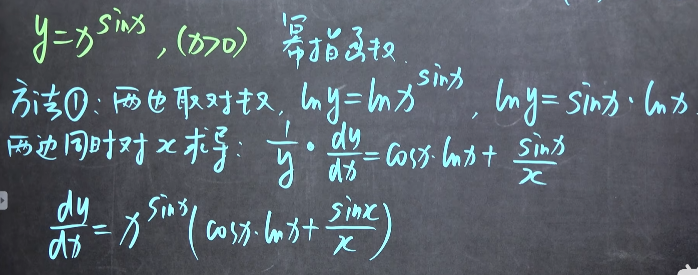 y=x^{sinx}, (x>0) 幂指函数.
方法①: 两边取对数, lny=lnx^{sinx}, lny=sinx·lnx
两边同时对x求导: \frac{1}{y}·\frac{dy}{dx}=cosx·lnx+\frac{sinx}{x}
\frac{dy}{dx}=x^{sinx}(cosx·lnx+\frac{sinx}{x})